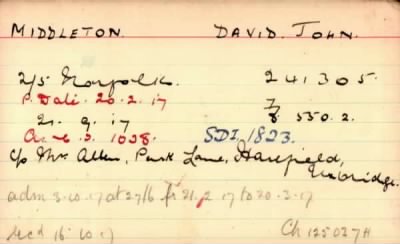 MIDDLETON. DAVID. JOHN.
2/5 Norfolk. 241305.
P. Dati. 20.2.17 7/
21. 9. 17 8 550.2.
1028. SDI. 1823.
c/o Mrs Allen, Park Lane, Harefield,
Uxbridge.
adm 3.10.17 at 27/6 fr 21.2.17 to 20.3.17
recd 16.10.17 Ch 125027H